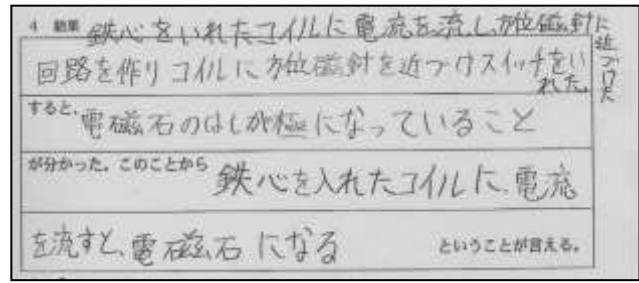 4 結果 鉄心をいれたコイルに電流を流し方位磁針に近づけた
回路を作りコイルに方位磁針を近づけスイッチをいれた。
すると、電磁石のはしが極になっていること
が分かった。このことから 鉄心を入れたコイルに、電流
を流すと、電磁石になる ということが言える。